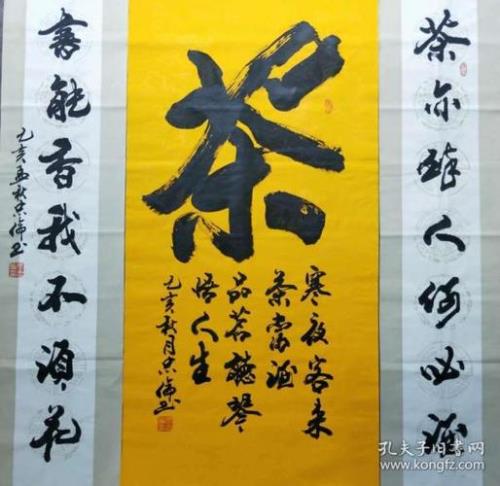 茶亦醉人何必酒
茶
寒夜客来
茶当酒
品茗听琴
悟人生
乙亥秋月
书能香我不须花
乙亥孟秋
孔夫子旧书网
www.kongfz.com